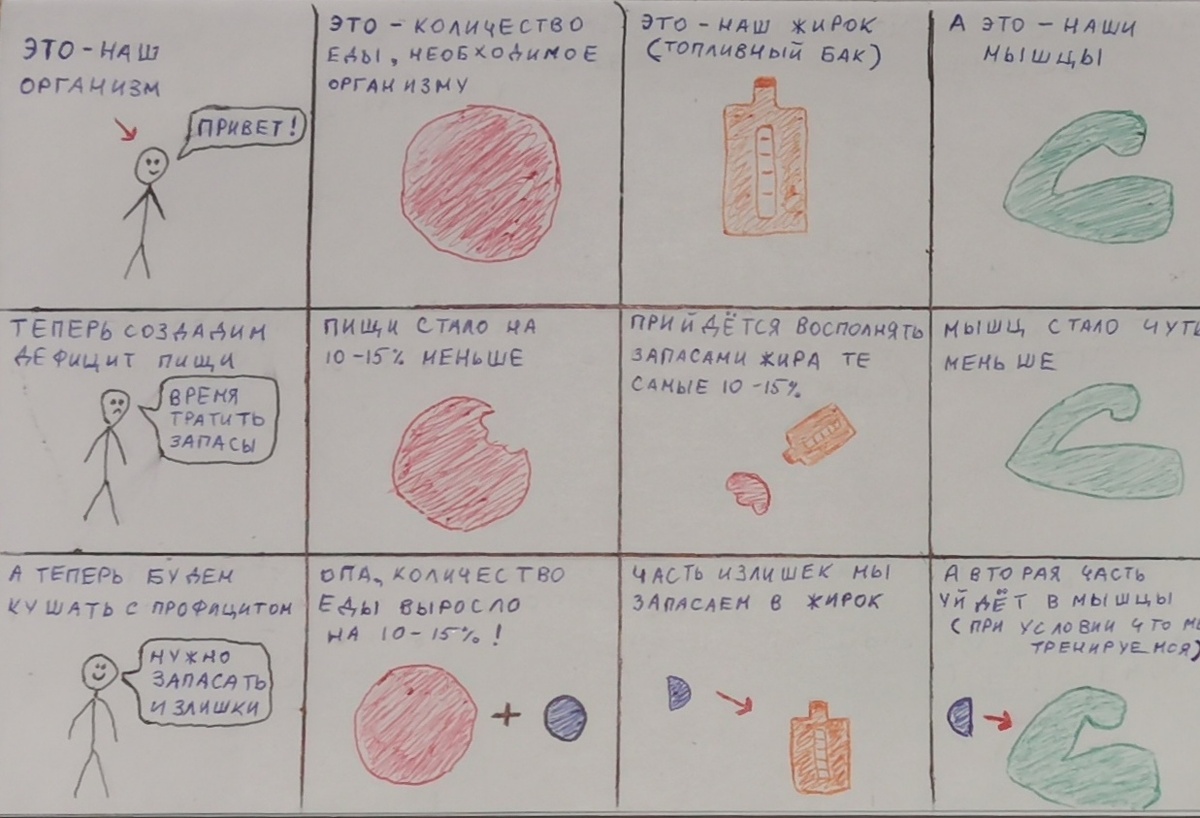 ЭТО - НАШ
ОРГАНИЗМ
ПРИВЕТ!
ЭТО - КОЛИЧЕСТВО
ЕДЫ, НЕОБХОДИМОЕ
ОРГАНИЗМУ
ЭТО - НАШ ЖИРОК
(ТОПЛИВНЫЙ БАК)
А ЭТО - НАШИ
МЫШЦЫ
ТЕПЕРЬ СОЗДАДИМ
ДЕФИЦИТ ПИЩИ
ВРЕМЯ
ТРАТИТЬ
ЗАПАСЫ
ПИЩИ СТАЛО НА
10-15% МЕНЬШЕ
ПРИЙДЁТСЯ ВОСПОЛНЯТЬ
ЗАПАСАМИ ЖИРА ТЕ
САМЫЕ 10-15%
МЫШЦ СТАЛО ЧУТЬ
МЕНЬШЕ
А ТЕПЕРЬ БУДЕМ
КУШАТЬ С ПРОФИЦИТОМ
НУЖНО
ЗАПАСАТЬ
ИЗЛИШКИ
ОПА, КОЛИЧЕСТВО
ЕДЫ ВЫРОСЛО
НА 10-15%!
+
ЧАСТЬ ИЗЛИШЕК МЫ
ЗАПАСАЕМ В ЖИРОК
А ВТОРАЯ ЧАСТЬ
УЙДЁТ В МЫШЦЫ
(ПРИ УСЛОВИИ ЧТО МЫ
ТРЕНИРУЕМСЯ)